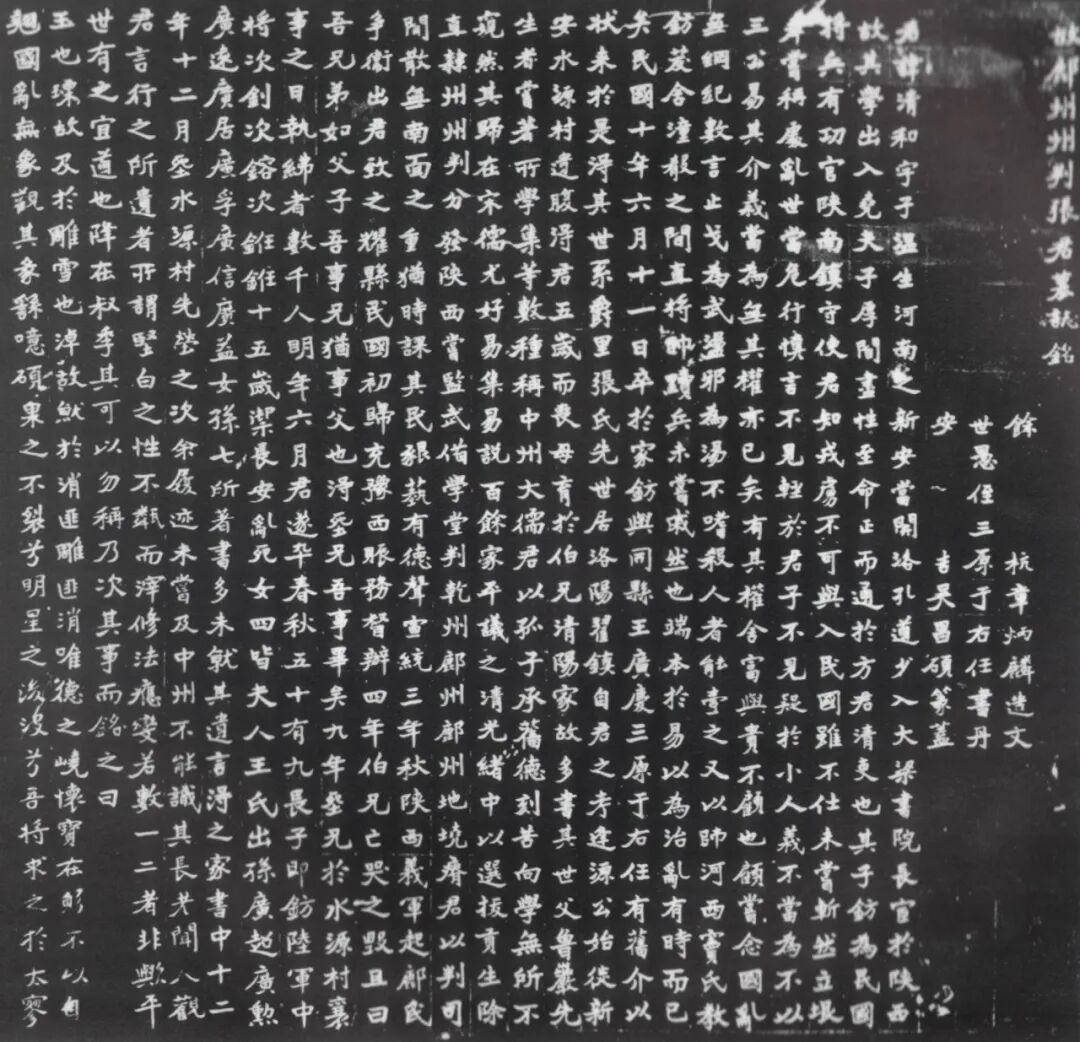 故鄜州州判張君墓誌銘
餘 杭章炳麟造文
世愚侄三原于右任書丹
安 ~ 吉吳昌碩篆蓋
君諱清和字子溫生河南之新安當開洛孔道少入大梁書院長宦於陝西
故其學出入堯夫子厚間盡性至命正而通於方君清吏也其子鈁為民國
將兵有功官陝南鎮守使君知戎虜不可與入民國雖不仕未嘗斬然立垠
嘗稱處亂世當危行慎言不見輕於君子不見疑於小人義不當為不以
三公易其介義當為無其權亦已矣有其權舍富與貴不顧也顧嘗念國亂
無綱紀數言止戈為武盪邪為湯不嗜殺人者能壹之又以師河西竇氏教
鈁茇舍潼殽之間直將帥黷兵未嘗戚然也端本於易以為治亂有時而已
矣民國十年六月十一日卒於家鈁與同縣王廣慶三原于右任有舊介以
狀来於是淂其世系爵里張氏先世居洛陽翟鎮自君之考逢源公始徙新
安水源村遺腹淂君五歲而喪母育於伯兄清陽家故多書其世父魯巖先
生者嘗著所學集等數種稱中州大儒君以孤子承舊德刻苦向學無所不
窺然其歸在宋儒尤好易集易說百餘家平議之清光緒中以選拔貢生除
直隸州州判分發陝西嘗監武備學堂判乾州鄜州鄜州地墝瘠君以判司
閒散無南面之重猶時課其民藝有德聲宣統三年秋陝西義軍起鄜民
爭衛出君致之耀縣民國初歸充豫西賑務督辦四年伯兄亡哭之毀且曰
吾兄弟如父子吾事兄猶事父也淂塟兄吾事畢矣九年塟兄於水源村襄
事之日執紼者數千人明年六月君遂卒春秋五十有九長子即鈁陸軍中
將次釗次鎔次錐錐十五歲禦長安亂死女四皆夫人王氏出孫廣訑廣勲
廣遠廣居廣孚廣信廣益女孫七所著書多未就其遺言淂之家書中十二
年十二月塟水源村先塋之次余履迹未嘗及中州不能識其長老聞人觀
君言行之所遺者所謂堅白之性不黩而滓修法應變若數一二者非歟平
世有之宜遒也降在叔季其可以勿稱乃次其事而銘之曰
玉也瑓故及於雕雪也淖故魮於消匪雕匪消唯德之嶢懷寶在躬不以自
魁國亂無象觀其象繇噫碩果之不裂兮明星之浚没兮吾將求之於太寥